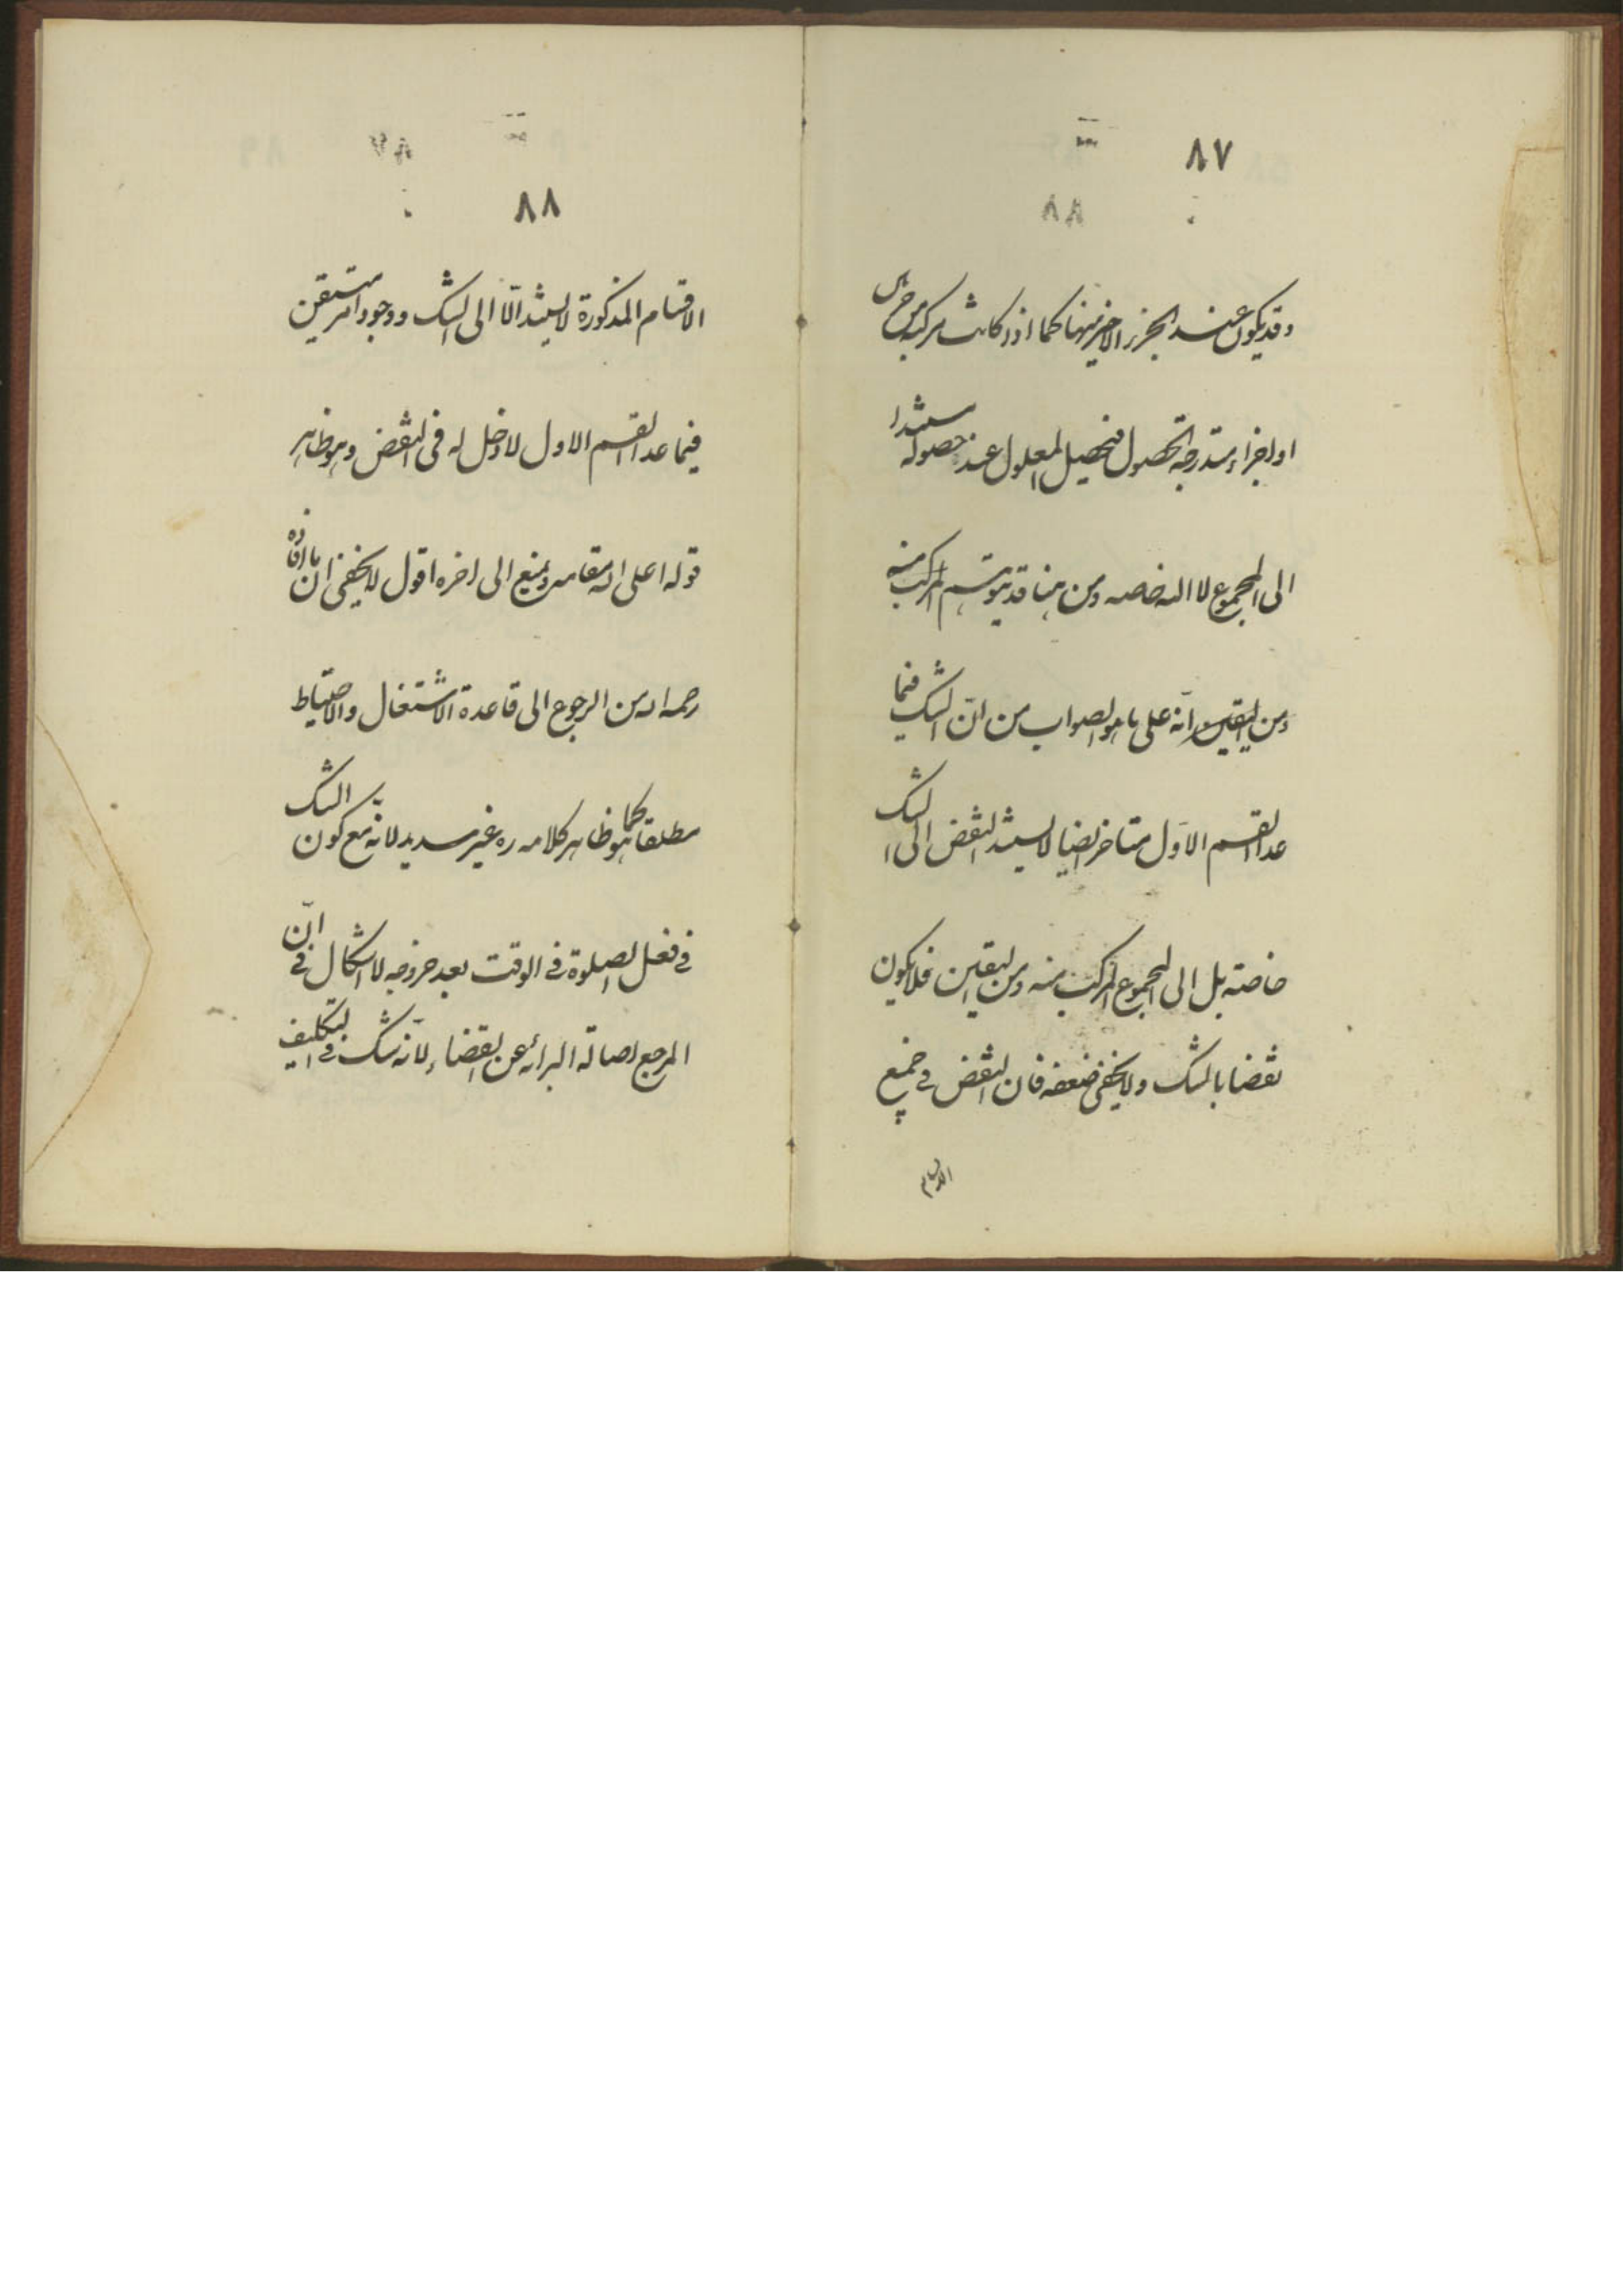 ٨٧
وقد يكون عند الجزء الاخير منها كما اذا كانت مركبة من جزئين
او اجزاء متدرجة الحصول فيحصل المعلول عند حصوله مستندا
الى المجموع لا اليه خاصه ومن هنا قد يتوهم المركب منه
ومن اليقين وانّه على ما هو الصواب من انّ الشك فيما
عدا القسم الاوّل متاخر ايضا لا يستند النقض الى الشك
خاصته بل الى المجموع المركب منه ومن اليقين فلا يكون
نقضا بالشك ولا يخفى ضعفه فان النقض في جميع
الاقسام
٨٨
الاقسام المذكورة لا يستند الّا الى الشك ووجود امر متيقن
فيما عدا القسم الاول لا دخل له في النقض وهو ظاهر
قوله اعلى الله مقامه ويمنع الى اخره اقول لا يخفى ان ما افاده
رحمه الله من الرجوع الى قاعدة الاشتغال والاحتياط
مطلقا كما هو ظاهر كلامه ره غير سديد لانّه مع كون الشك
في فعل الصلوة في الوقت بعد خروجه لا اشكال في انّ
المرجع اصالة البرائه عن القضاء لانّه شك في التكليف